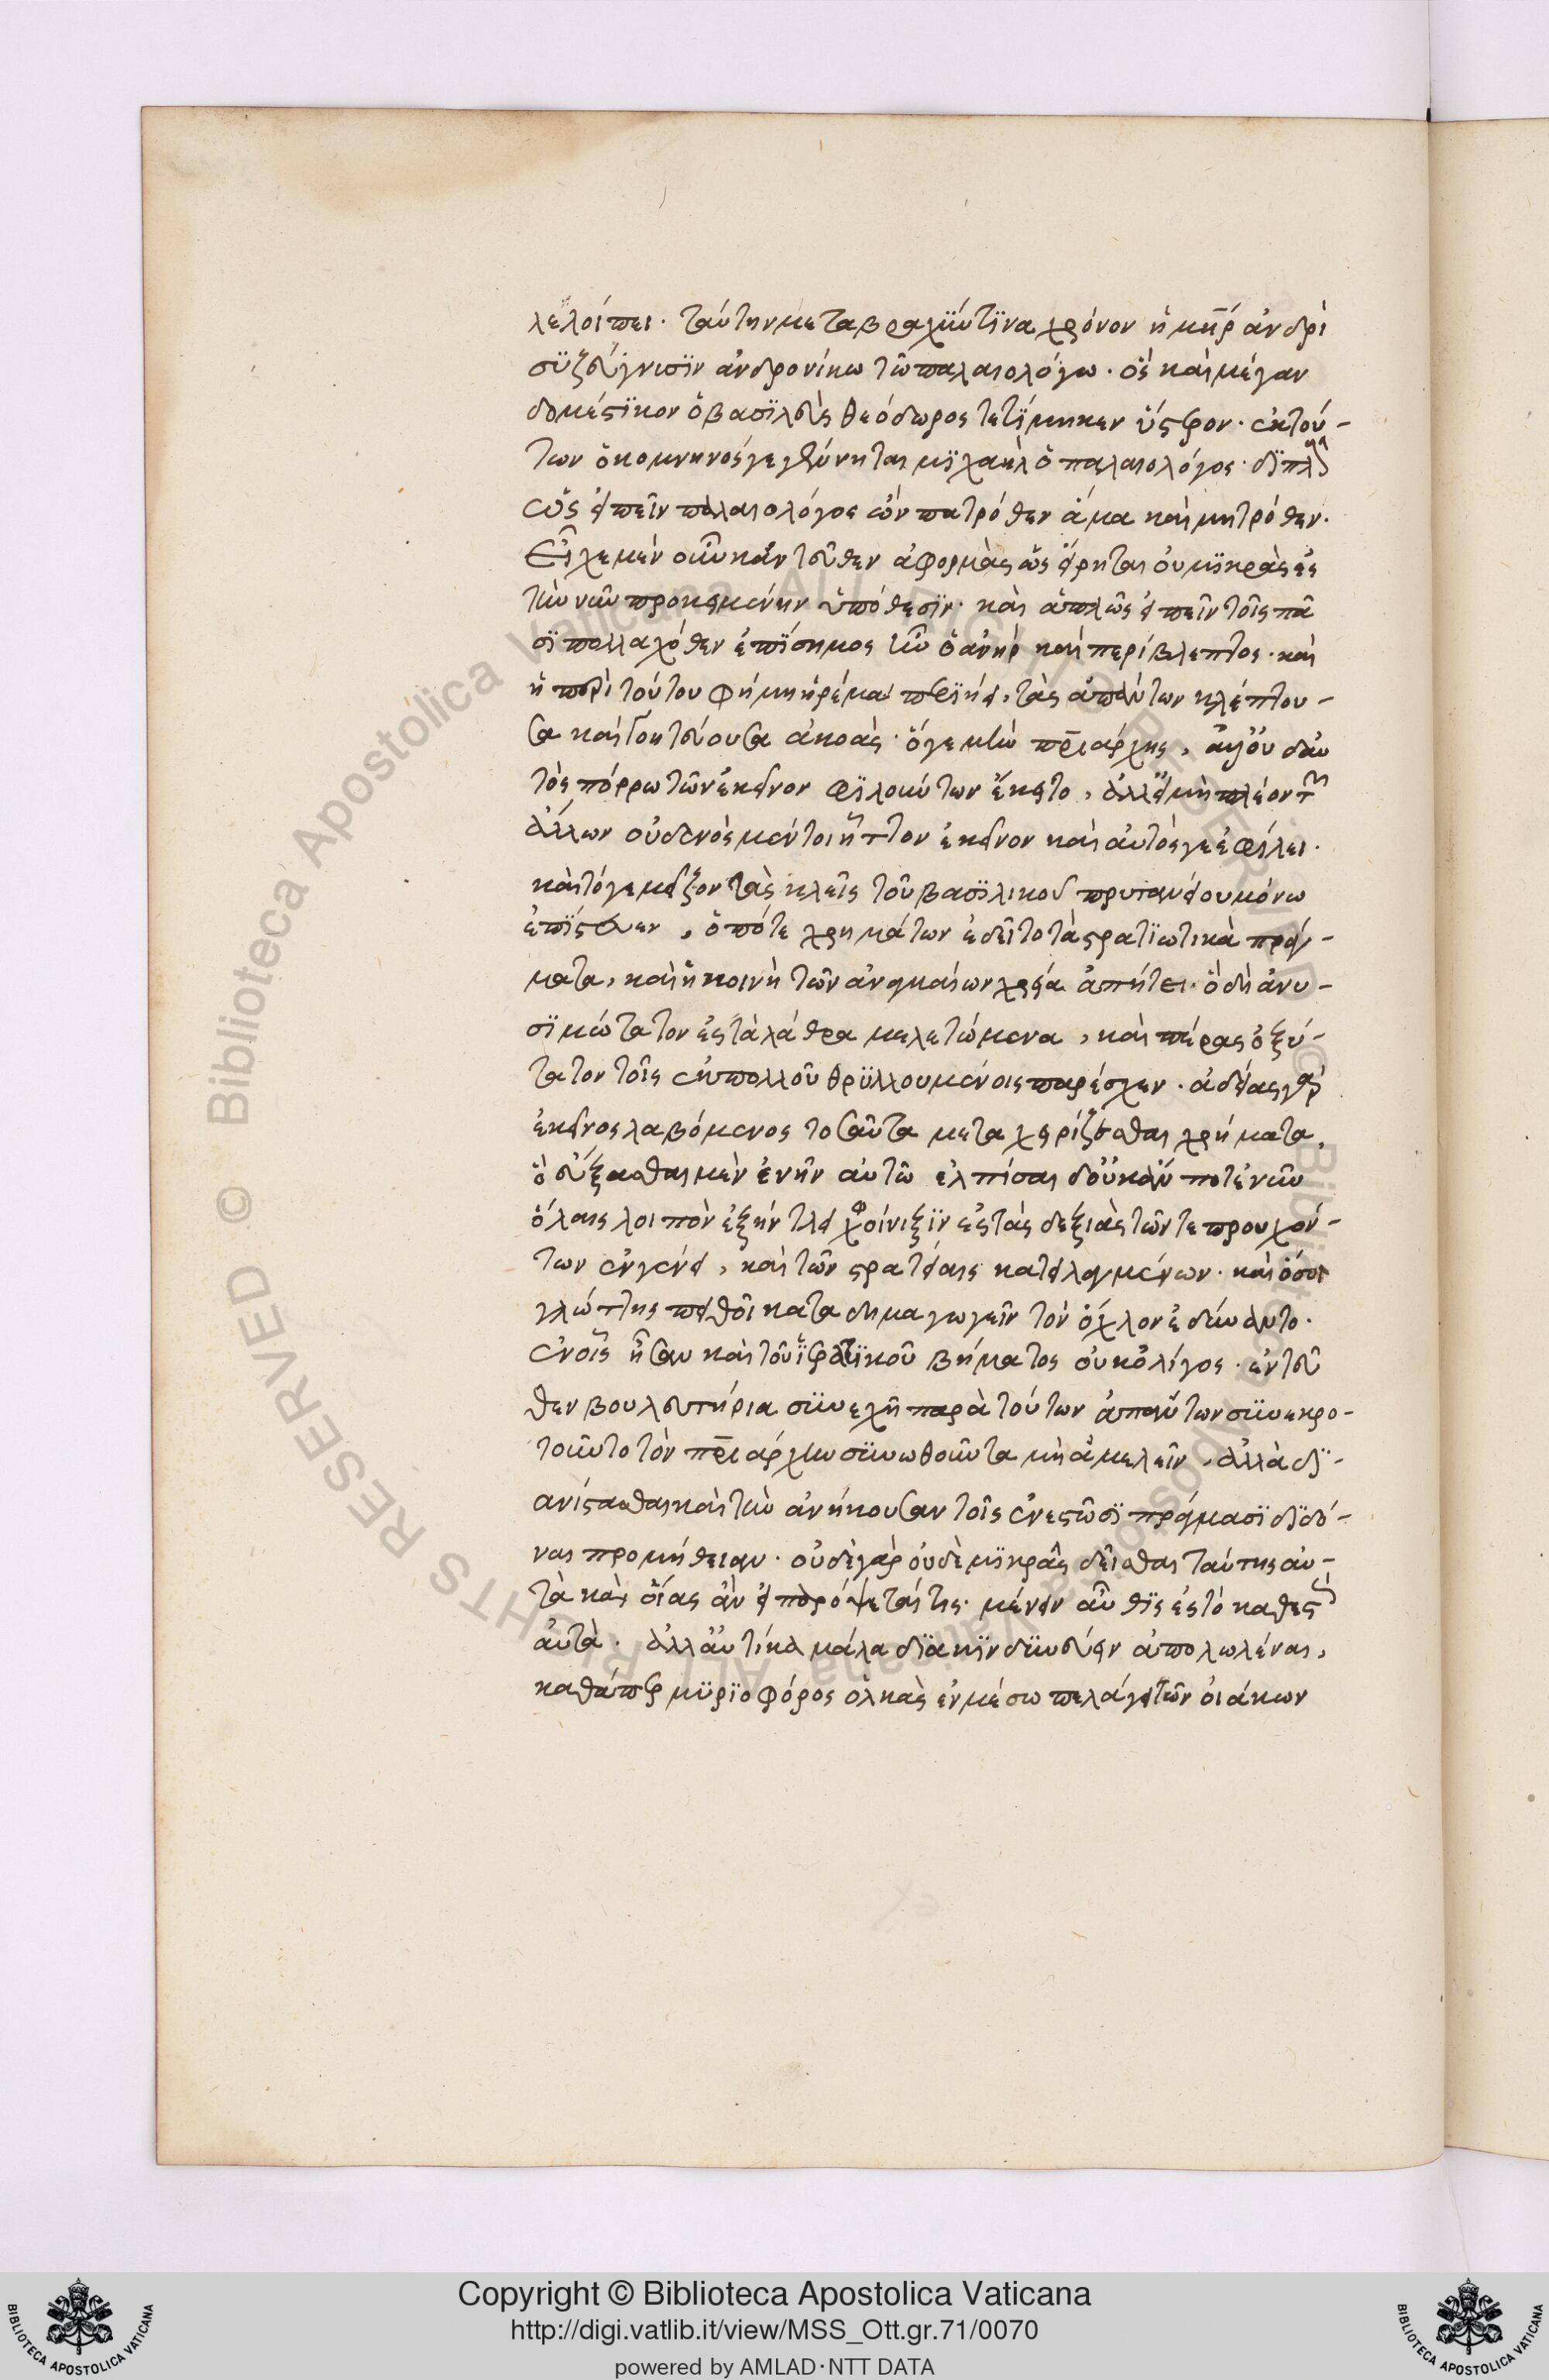 λελοίπει· ταύτην μετα βραχϋύ τϊνα χρόνον ἡ μη̅ρ ἀνδρὶ
σϋζεύγνισϊν ἀνδρονίκω τῶ παλαιολόγω· ὃν καὶ μέγαν
δομέστϊκον ὁ βασϊλεὺς θεόδωρος τετΐμηκεν ὕστερον· ἐκ τού-
των ὁ κομνηνός γεγέννηται μϊχαὴλ ὁ παλαιολόγος· δϊπλ
ὡς εἰπεῖν παλαιολόγος ὢν πατρόθεν ἅμα καὶ μητρόθεν.
Εἶχε μὲν οὖν κἀντεῦθεν ἀφορμὰς ὡς εἴρηται οὐ μϊκρὰς ἐς
τὴν νῦν προκειμένην ὑπόθεσϊν· καὶ ἁπλῶς εἰπεῖν τοῖς πᾶ
σϊ πολλαχόθεν ἐπΐσημος ἦν ὁ ἀνὴρ καὶ περίβλεπτος· καὶ
ἡ περὶ τούτου φήμη ἠρέμα περϊήει, τὰς ἁπάντων κλέπτου-
σα καὶ γοητεύουσα ἀκοάς· ὅγε μὴν πρ̅ιάρχης, οὐδαυ
τὸς πόρρω τῶν ἐκεῖνον φϊλούντων ἔκειτο, ἀλλ' εἰ μὴ πλέον τ
ἄλλων οὐδενὸς μέντοι ἧττον ἐκεῖνον καὶ αὐτός γε ἐφίλει·
καὶ τόγε μεῖζον τὰς κλεῖς τοῦ βασϊλικοῦ πρυτανείου μόνω
ἐπΐστευεν, ὁπότε χρημάτων ἐδεῖτο τὰ στρατϊωτικὰ πράγ-
ματα, καὶ ἡ κοινὴ τῶν ἀναγκαίων χρεία ἀπήτει· ὃ δὴ ἀνυ-
σϊμώτατον ἐς τὰ λάθρα μελετώμενα, καὶ πέρας ὀξύ-
τατον τοῖς ἐκ πολλοῦ θρϋλλουμένοις παρέσχεν· ἀδείας γὰρ
ἐκεῖνος λαβόμενος τοσαῦτα μεταχειρίζεσθαι χρήματα,
ὃ εὔξασθαι μὲν ἐνῆν αὐτῶ ἐλπίσαι δ' οὐκ ἄν ποτε νῦν
ὅλαις λοιπὸν ἐξήντλει χοίνιξϊν ἐς τὰς δεξιὰς τῶν τε προυχόν-
των ἐν γένει, καὶ τῶν στρατείαις κατειλεγμένων· καὶ ὅσοι
γλώττης πειθοῖ καταδημαγωγεῖν τὸν ὄχλον ἐδύναντο·
ἐν οἷς ἦσαν καὶ τοῦ ἱερατϊκοῦ βήματος οὐκ ὀλίγος· ἐντεῦ
θεν βουλευτήρια σϋνεχῆ παρὰ τούτων ἁπάντων σϋνεκρο-
τοῦντο τὸν πρ̅ιάρχην σϋνωθοῦντα μὴ ἀμελεῖν, ἀλλὰ δϊ-
ανίστασθαι καὶ τὴν ἀνήκουσαν τοῖς ἐνεστῶσϊ πράγμασϊ δϊδό-
ναι προμήθειαν· οὐδὲ γὰρ οὐδὲ μϊκρᾶς δεῖσθαι ταύτης αὐ-
τὰ καὶ οἵας ἂν εἰπορόψεταί τις· μένειν αὖθϊς ἐς τὸ καθεστ
αὐτά· ἀλλ' αὐτίκα μάλα δϊακϊνδυνεύειν ἀπολωλέναι,
καθάπερ μϋρϊοφόρος ὁλκὰς ἐν μέσω πελάγει τῶν οἰάκων
Copyright © Biblioteca Apostolica Vaticana
http://digi.vatlib.it/view/MSS_Ott.gr.71/0070
powered by AMLAD·NTT DATA